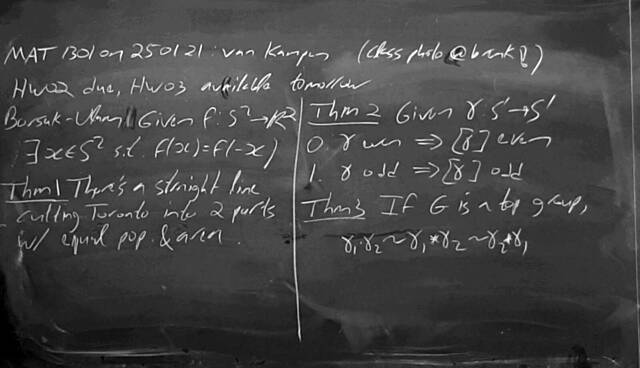 MAT 1301 on 250121: van Kampen (class photo @ break!)
HW02 due, HW03 available tomorrow
Borsuk-Ulam Given f: S²→ℝ²
∃x∈S² s.t. f(x)=f(-x)
Thm 1 There's a straight line
cutting Toronto into 2 parts
w/ equal pop. & area.
Thm 2 Given γ: S¹→S¹
0. γ even ⇒ [γ] even
1. γ odd ⇒ [γ] odd
Thm 3 If G is a top group,
γ₁·γ₂ ~ γ₁*γ₂ ~ γ₂*γ₁